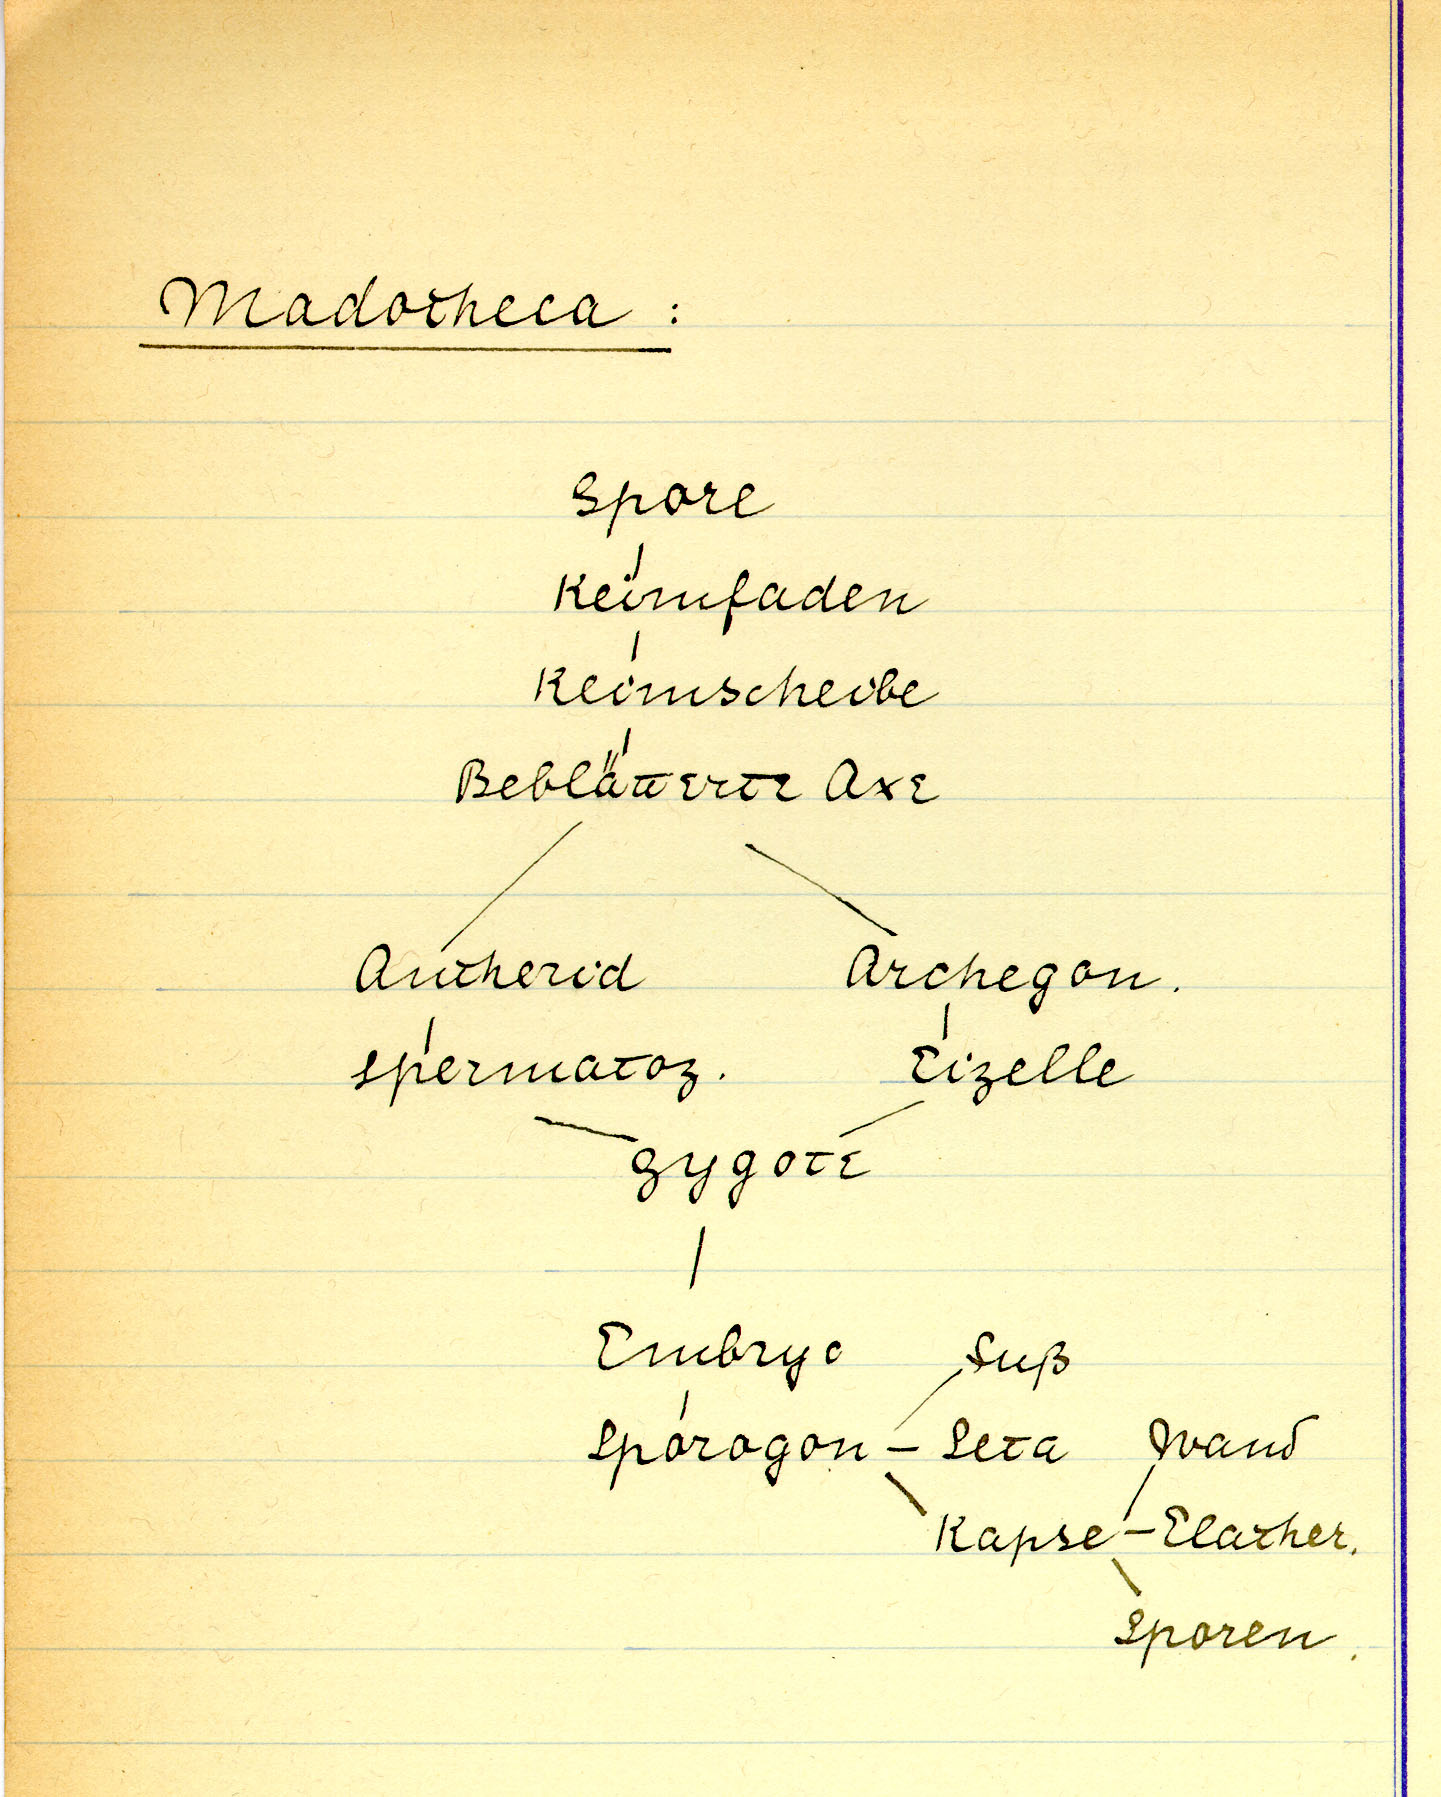 Madotheca :
Spore
Keimfaden
Keimscheibe
Beblätterte Axe
Antherid Archegon.
Spermatoz. Eizelle
Zygote
Embryo Fuß
Sporogon – Seta Wand
Kapse – Elather.
Sporen.